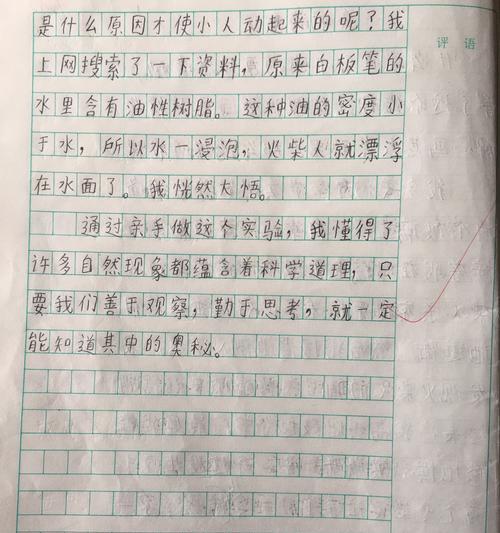 是什么原因才使小人动起来的呢？我
上网搜索了一下资料，原来白板笔的
水里含有油性树脂。这种油的密度小
于水，所以水一浸泡，火柴人就漂浮
在水面了。我恍然大悟。
通过亲手做这个实验，我懂得了
许多自然现象都蕴含着科学道理，只
要我们善于观察，勤于思考，就一定
能知道其中的奥秘。
评语